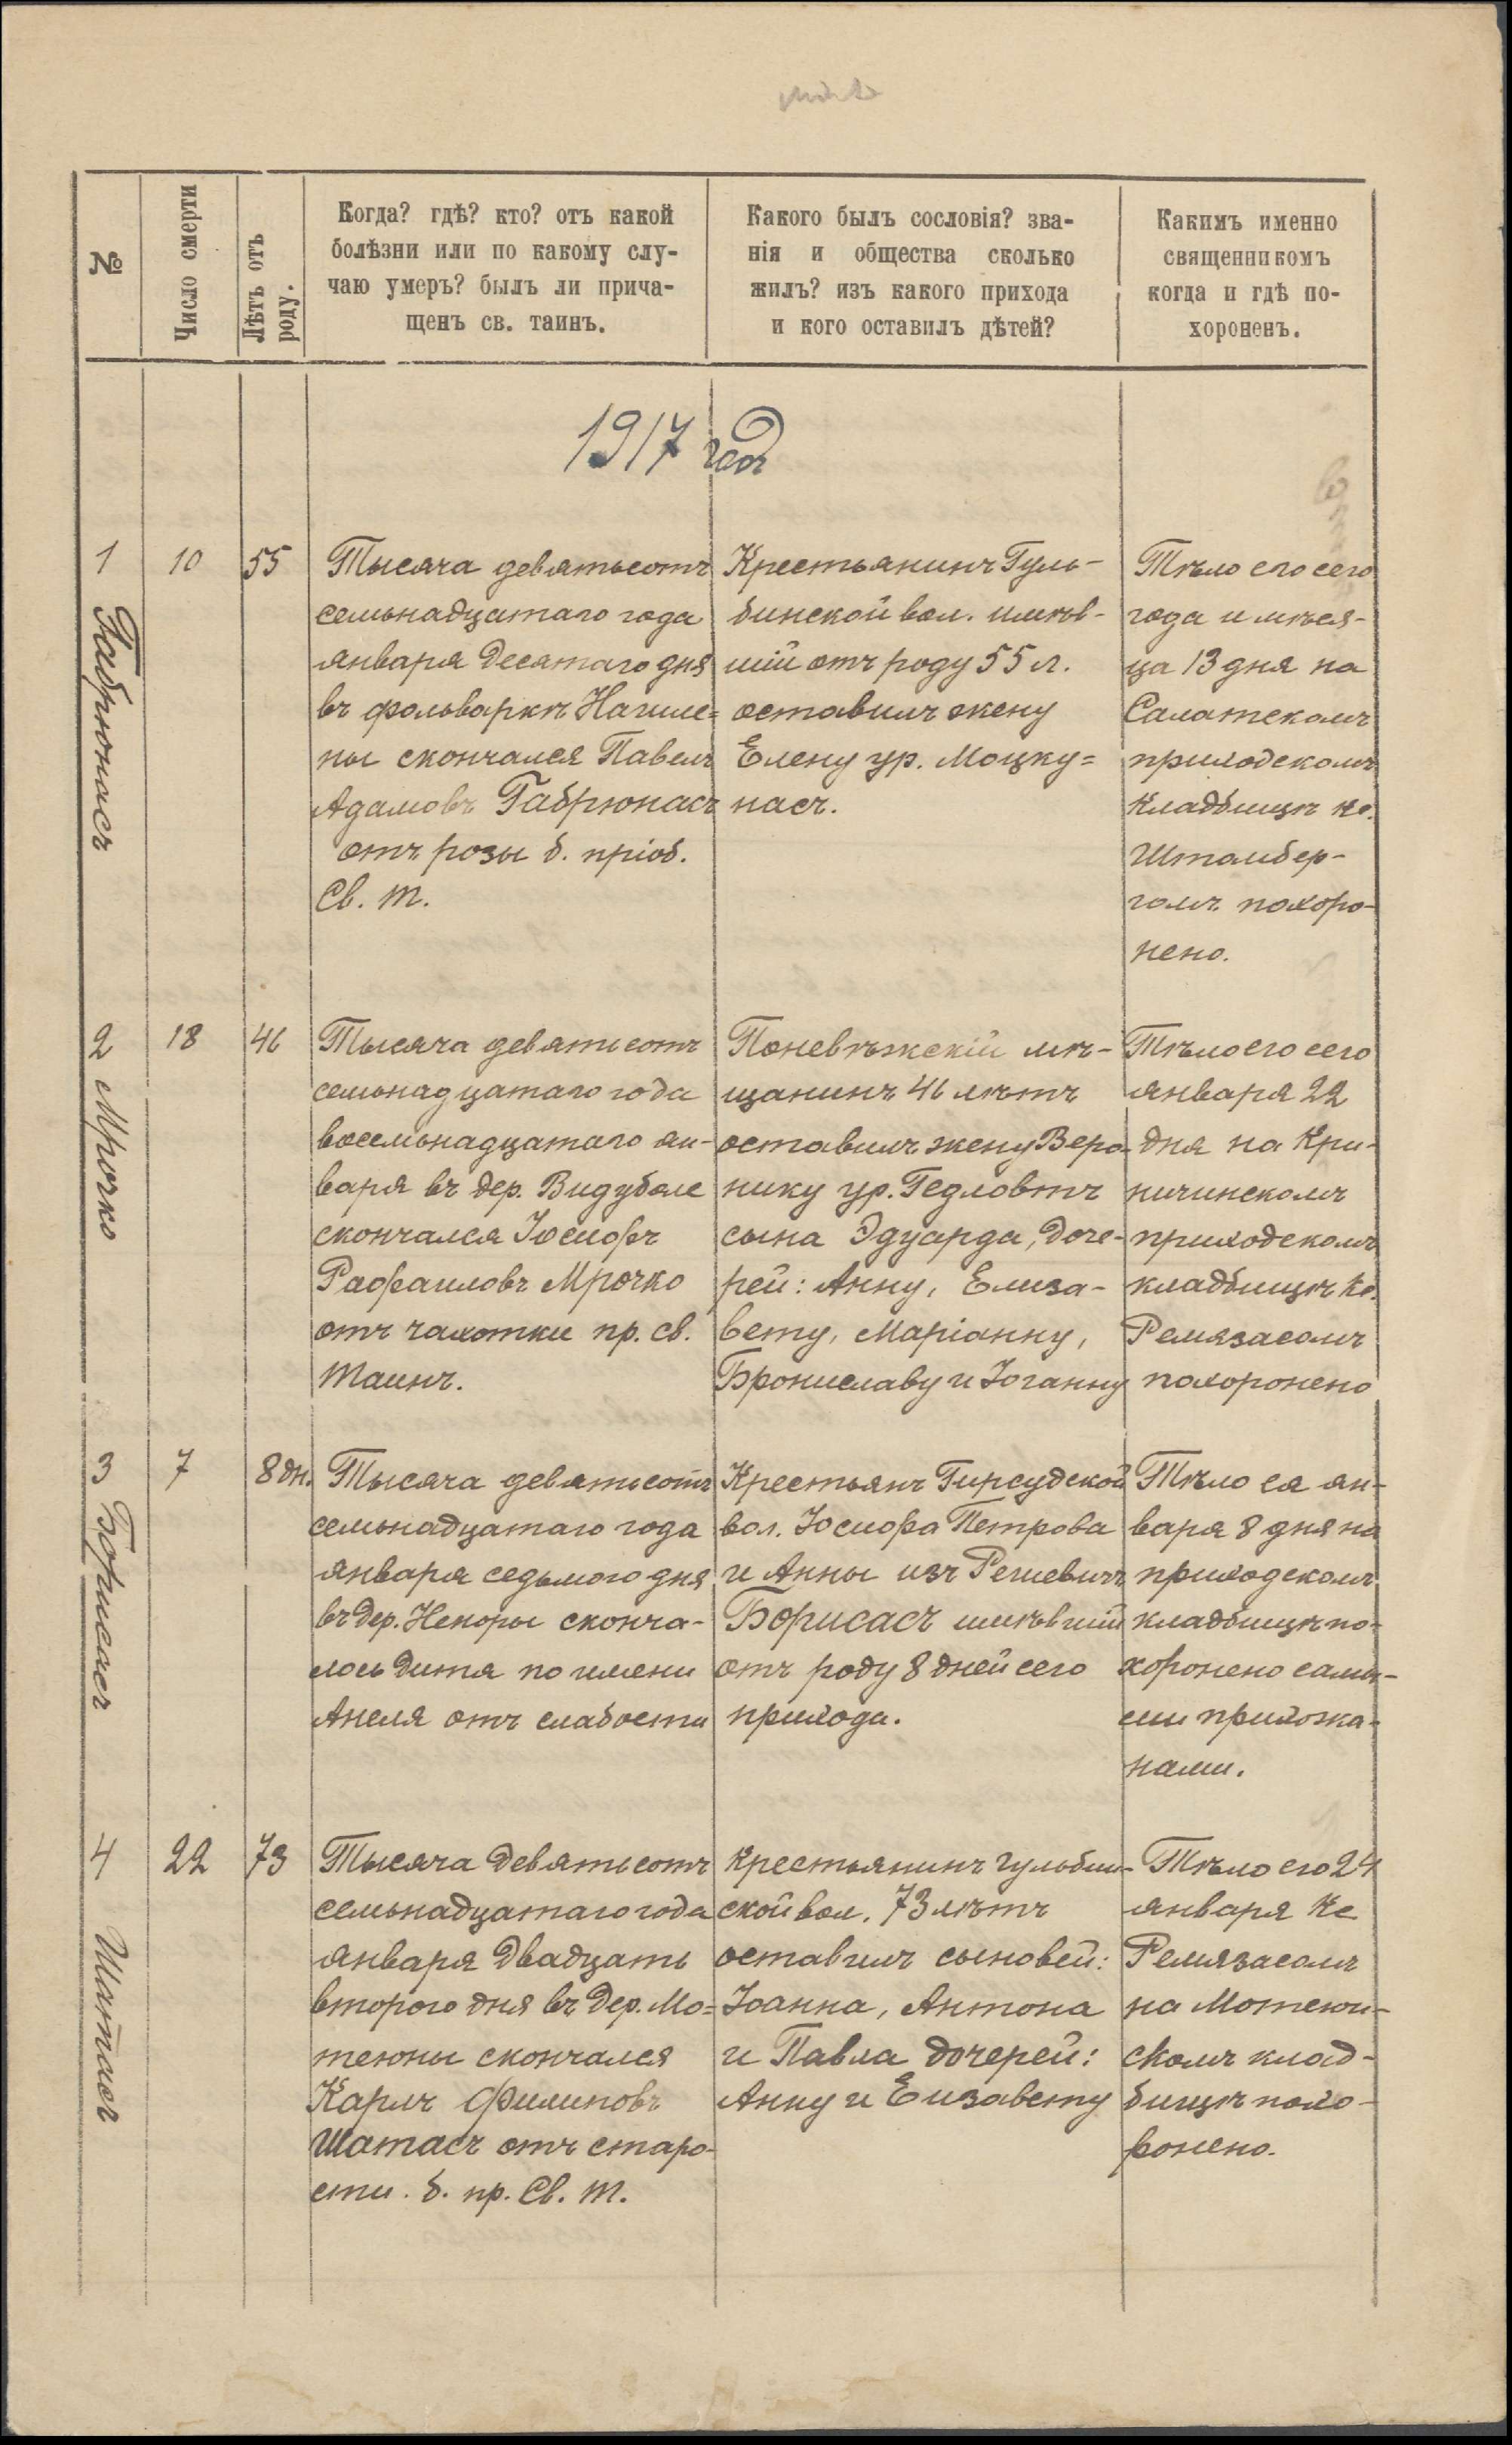 №
Число смерти
Лѣтъ отъ
роду.
Когда? гдѣ? кто? отъ какой
болѣзни или по какому слу-
чаю умеръ? былъ ли прича-
щенъ св. таинъ.
Какого былъ сословія? зва-
нія и общества сколько
жилъ? изъ какого прихода
и кого оставилъ дѣтей?
Какимъ именно
священникомъ
когда и гдѣ по-
хороненъ.
1917 год
1
Габрюнасъ
10
55
Тысяча девятьсотъ
семьнадцатаго года
января десятаго дня
въ фольваркѣ Нагиле=
ны скончался Павелъ
Адамовъ Габрюнасъ
отъ розы б. пріоб.
Св. Т.
Крестьянинъ Гуль-
бинской вол. имѣв-
шій отъ роду 55 л.
оставилъ жену
Елену ур. Моцку=
насъ.
Тѣло его сего
года и мѣся-
ца 13 дня на
Салатскомъ
приходскомъ
кладбищѣ кс.
Штамбер-
гомъ похоро-
нено.
2
Мрочко
18
46
Тысяча девятисотъ
семьнадцатаго года
восемьнадцатаго ян-
варя въ дер. Видуболе
скончался Іосифъ
Рафаиловъ Мрочко
отъ чахотки пр. св.
Таинъ.
Поневѣжскій мѣ-
щанинъ 46 лѣтъ
оставилъ жену Веро-
нику ур. Гедловтъ
сына Эдуарда, доче-
рей: Анну, Елиза-
вету, Маріанну,
Брониславу и Іоганну
Тѣло его сего
января 22
дня на Кри-
ничинскомъ
приходскомъ
кладбищѣ кс.
Ремязасомъ
похоронено
3
Борисасъ
7
8 дн.
Тысяча девятисотъ
семьнадцатаго года
января седьмого дня
въ дер. Некоры сконча-
лось дитя по имени
Анеля отъ слабости
Крестьянъ Гирсудской
вол. Іосифа Петрова
и Анны изъ Решевичъ
Борисасъ имѣвшій
отъ роду 8 дней сего
прихода.
Тѣло ея ян-
варя 8 дня на
приходскомъ
кладбищѣ по-
хоронено сами-
ми прихожа-
нами.
4
Шатасъ
22
73
Тысяча девятисотъ
семьнадцатаго года
января двадцать
второго дня въ дер. Мо=
теюны скончался
Карлъ Филиповъ
Шатасъ отъ старо-
сти. б. пр. Св. Т.
Крестьянинъ Гульбин-
ской вол. 73 лѣтъ
оставилъ сыновей:
Іоанна, Антона
и Павла дочерей:
Анну и Елизавету
Тѣло его 24
января кс
Ремязасомъ
на Мотеюн-
скомъ клад-
бищѣ похо-
ронено.